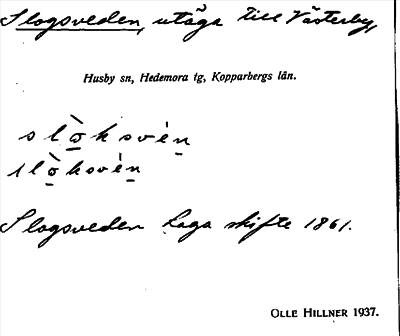 Slogsveden, utäga till Västerby,
Husby sn, Hedemora tg, Kopparbergs län.
slò̠ksvèṉ
slò̠ksvèṉ
Slogsveden Laga skifte 1861.
OLLE HILLNER 1937.